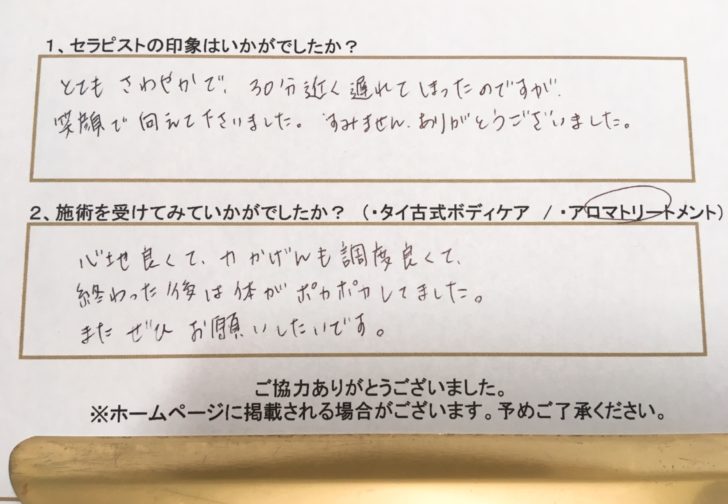 １、セラピストの印象はいかがでしたか？
とても さわやかで、30分近く遅れてしまったのですが、
笑顔で向えて下さいました。すみません、ありがとうございました。
２、施術を受けてみていかがでしたか？ （・タイ古式ボディケア / ・アロマトリートメント）
心地良くて、力かげんも調度良くて、
終わった後は体がポカポカしてました。
また ぜひ お願いしたいです。
ご協力ありがとうございました。
※ホームページに掲載される場合がございます。予めご了承ください。